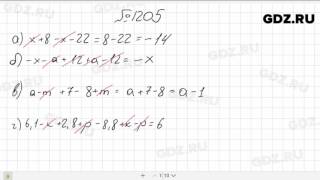 GDZ.RU
№1205
а) x+8-x-22=8-22=-14
б) -x-a+12+a-12=-x
в) a-m+7-8+m=a+7-8=a-1
г) 6,1-к+2,8+p-8,8+к-p=6